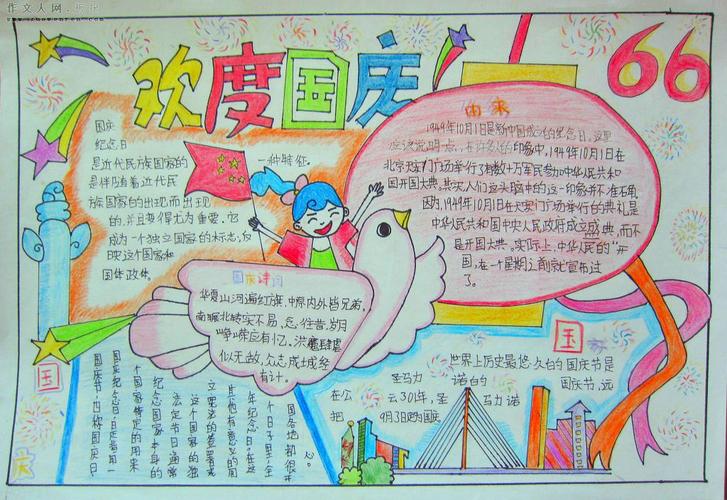 作文人网
欢度国庆
66
国庆
纪念日
是近代民族国家的
一种特征,
是伴随着近代民
族国家的出现而出现
的,并且变得尤为重要。它
成为一个独立国家的标志,反
映这个国家的
国体政体
由来
1949年10月1日是新中国成立的纪念日。这里
应该说明一点,在许多人的印象中,1949年10月1日在
北京天安门广场举行了有数十万军民参加的中华人民共和
国开国大典。其实,人们头脑中的这一印象并不准确。
因为,1949年10月1日在天安门广场举行的典礼是
中华人民共和国中央人民政府成立盛典,而不
是开国大典。实际上,中华人民的"开
国,在一个星期之前就宣布过
了。
国庆诗词
华夏山河遍红旗,中原内外皆兄弟。
南征北战实不易,忘
往昔,岁月
峥嵘应有忆。洪魔肆虐
似无敌,众志成城终
有计。
国
庆
国庆节,也称国庆日、
国庆纪念日,是指由一
个国家制定的用来
纪念国家本身的
法定节日,通常
这个国家的独
其他有意义的周
年纪念日,在这
个日子里,全
国各地都很开
心。
国家
世界上历史最悠久的国庆节是
圣马力
诺的
国庆节,远
在公
元301年,圣
马力诺
把
9月3日定为国庆